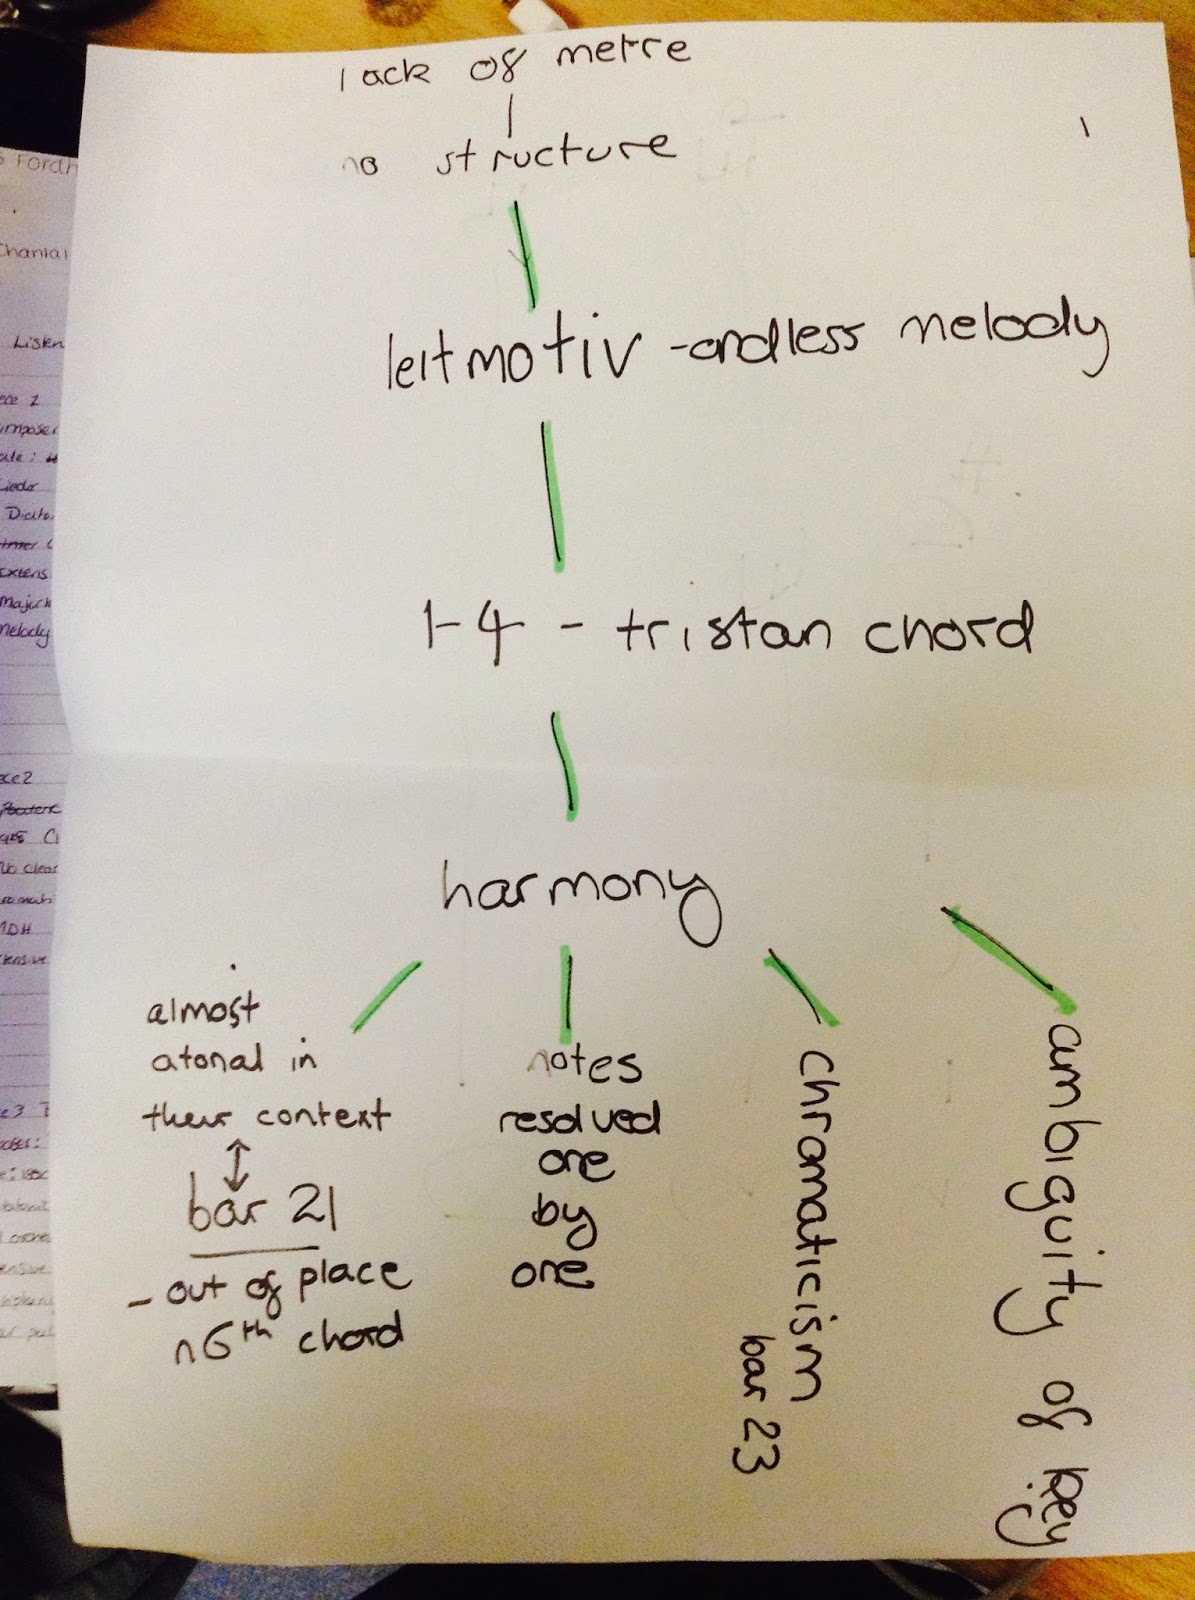 lack of metre
no structure
leitmotiv - endless melody
1-4 - tristan chord
harmony
almost
atonal in
their context
bar 21
- out of place
n6th chord
notes
resolved
one
by
one
chromaticism
bar 23
ambiguity of key
Fordh
Chantal
Listen
2
Extens
Major
melody
clear